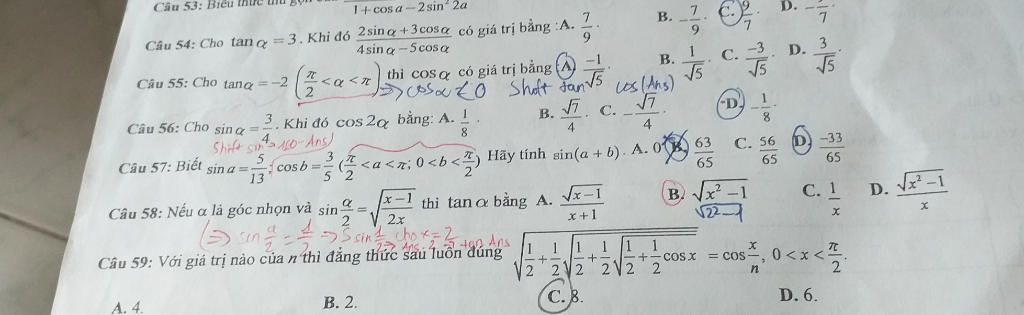 Câu 53: Biểu thức 1 + cos a - 2 sin² 2a
Câu 54: Cho tan α = 3. Khi đó (2 sin α + 3 cos α)/(4 sin α - 5 cos α) có giá trị bằng :A. 7/9. B. -7/9. C. 9/7. D. -9/7.
Câu 55: Cho tan α = -2 (π/2 < α < π) thì cos α có giá trị bằng A. -1/√5. B. 1/√5. C. -3/√5. D. 3/√5.
=> cos α < 0 Shift tan cos(Ans)
Câu 56: Cho sin α = 3/4. Khi đó cos 2α bằng: A. 1/8. B. √7/4. C. -√7/4. D. -1/8.
Shift sin 180-Ans)
Câu 57: Biết sin a = 5/13; cos b = 3/5 (π/2 < a < π; 0 < b < π/2) Hãy tính sin(a + b). A. 0 B. 63/65 C. 56/65 D. -33/65
Câu 58: Nếu α là góc nhọn và sin α/2 = √((x-1)/(2x)) thì tan α bằng A. √(x-1)/(x+1) B. √(x²-1) C. 1/x D. √(x²-1)/x
√2²-1
=> sin a/2 = 1/2 -> S sin 1/2 cho x = 2
-> Ans. 2 -> tan Ans
Câu 59: Với giá trị nào của n thì đẳng thức sau luôn đúng √(1/2 + 1/2 √(1/2 + 1/2 √(1/2 + 1/2 cos x))) = cos x/n, 0 < x < π/2.
A. 4. B. 2. C. 8. D. 6.